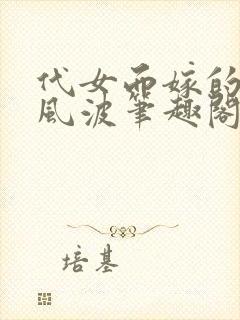 代女而嫁的
風波筆趣閣
培基